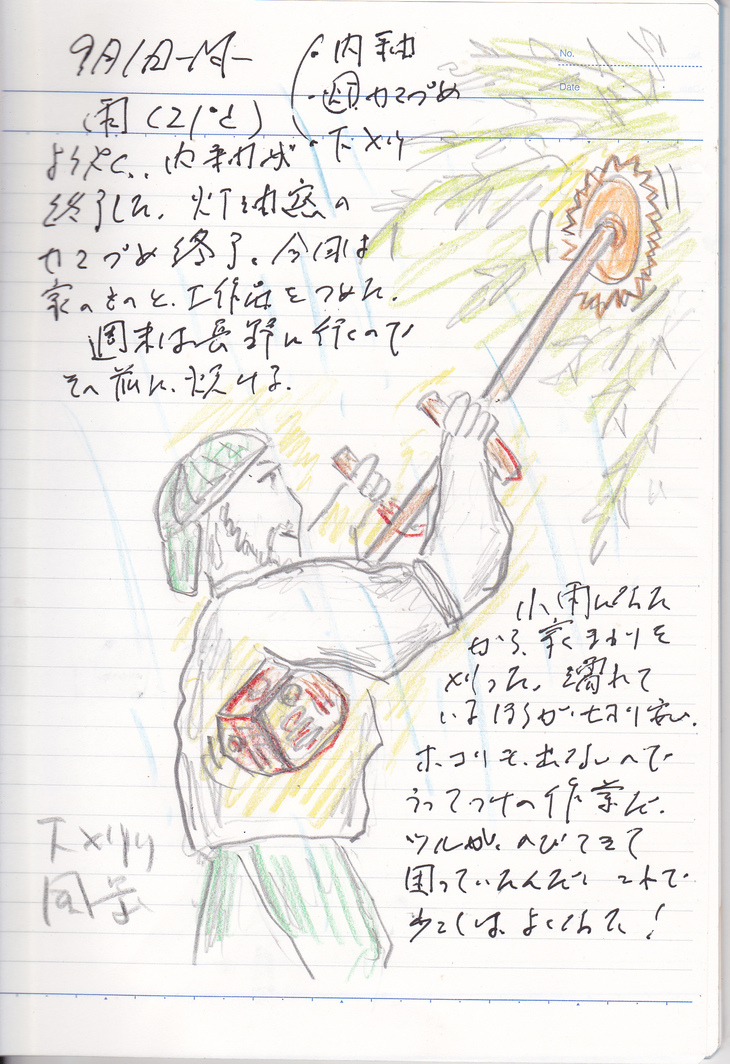 9月1日-M-
・内釉
・週カマづめ
・下メリ
雨(21°C)
ようやく、内釉が
終了した。灯油窯の
カマづめ終了。今回は
家のものと、工作品をつめた。
週末は長野に行くので
その前に、焚ける。
No.
Date
小雨になった
から、家まわりを
刈った。濡れて
いるほうが切り安い。
ホコリも、出ないので
うってつけの作業だ。
ツルが、のびてきて
困っていたんだ。これで
少しは、よくなった!
風景